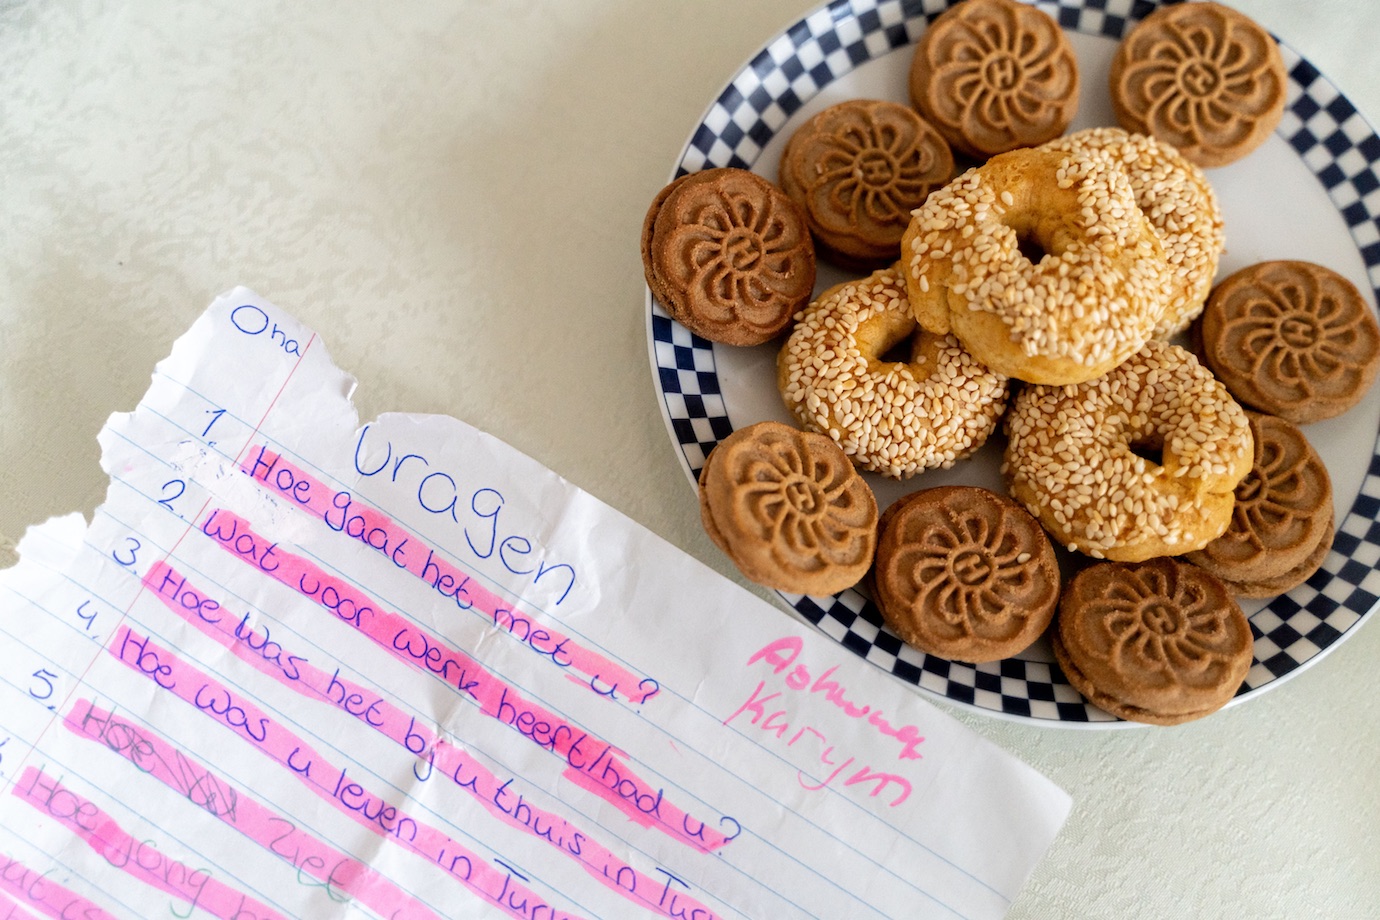 Ona
Vragen
1. Hoe gaat het met u?
2. Wat voor werk heeft/had u?
3. Hoe was het bij u thuis in Tur
4. Hoe was u leven in Tur
5. Hoe ziet
Hoe jong be
Karym
H
H
H
H
H
H
H
H